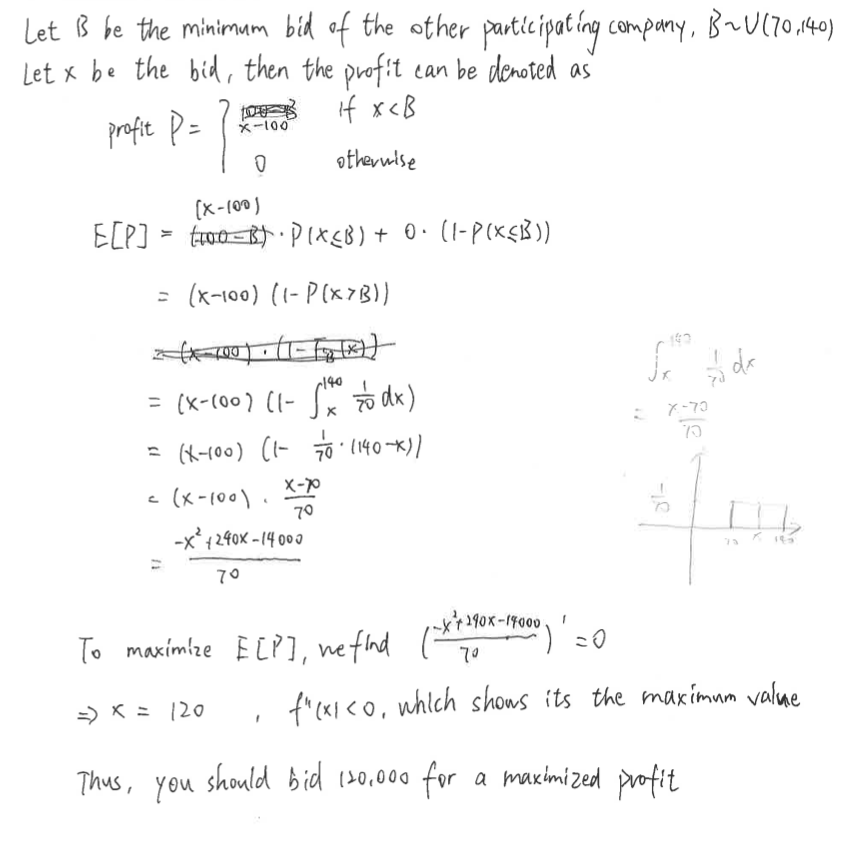 Let B be the minimum bid of the other participating company, B~U(70,140)
Let x be the bid, then the profit can be denoted as
profit P = { x-100 if x<B
0 otherwise
(x-100)
E[P] = (100-B) · P(x≤B) + 0 · (1-P(x≤B))
= (x-100) (1-P(x>B))
= (x-100) · (1-F_B(x))
= (x-100) (1- ∫_x^140 1/70 dx)
= (x-100) (1- 1/70 · (140-x))
= (x-100) · x-70/70
= -x²+240x-14000/70
∫_x^140 1/70 dx
= x-70/70
1/70
70 x 140
To maximize E[P], we find (-x²+240x-14000/70)' = 0
⇒ x = 120 , f"(x)<0, which shows its the maximum value
Thus, you should bid 120,000 for a maximized profit